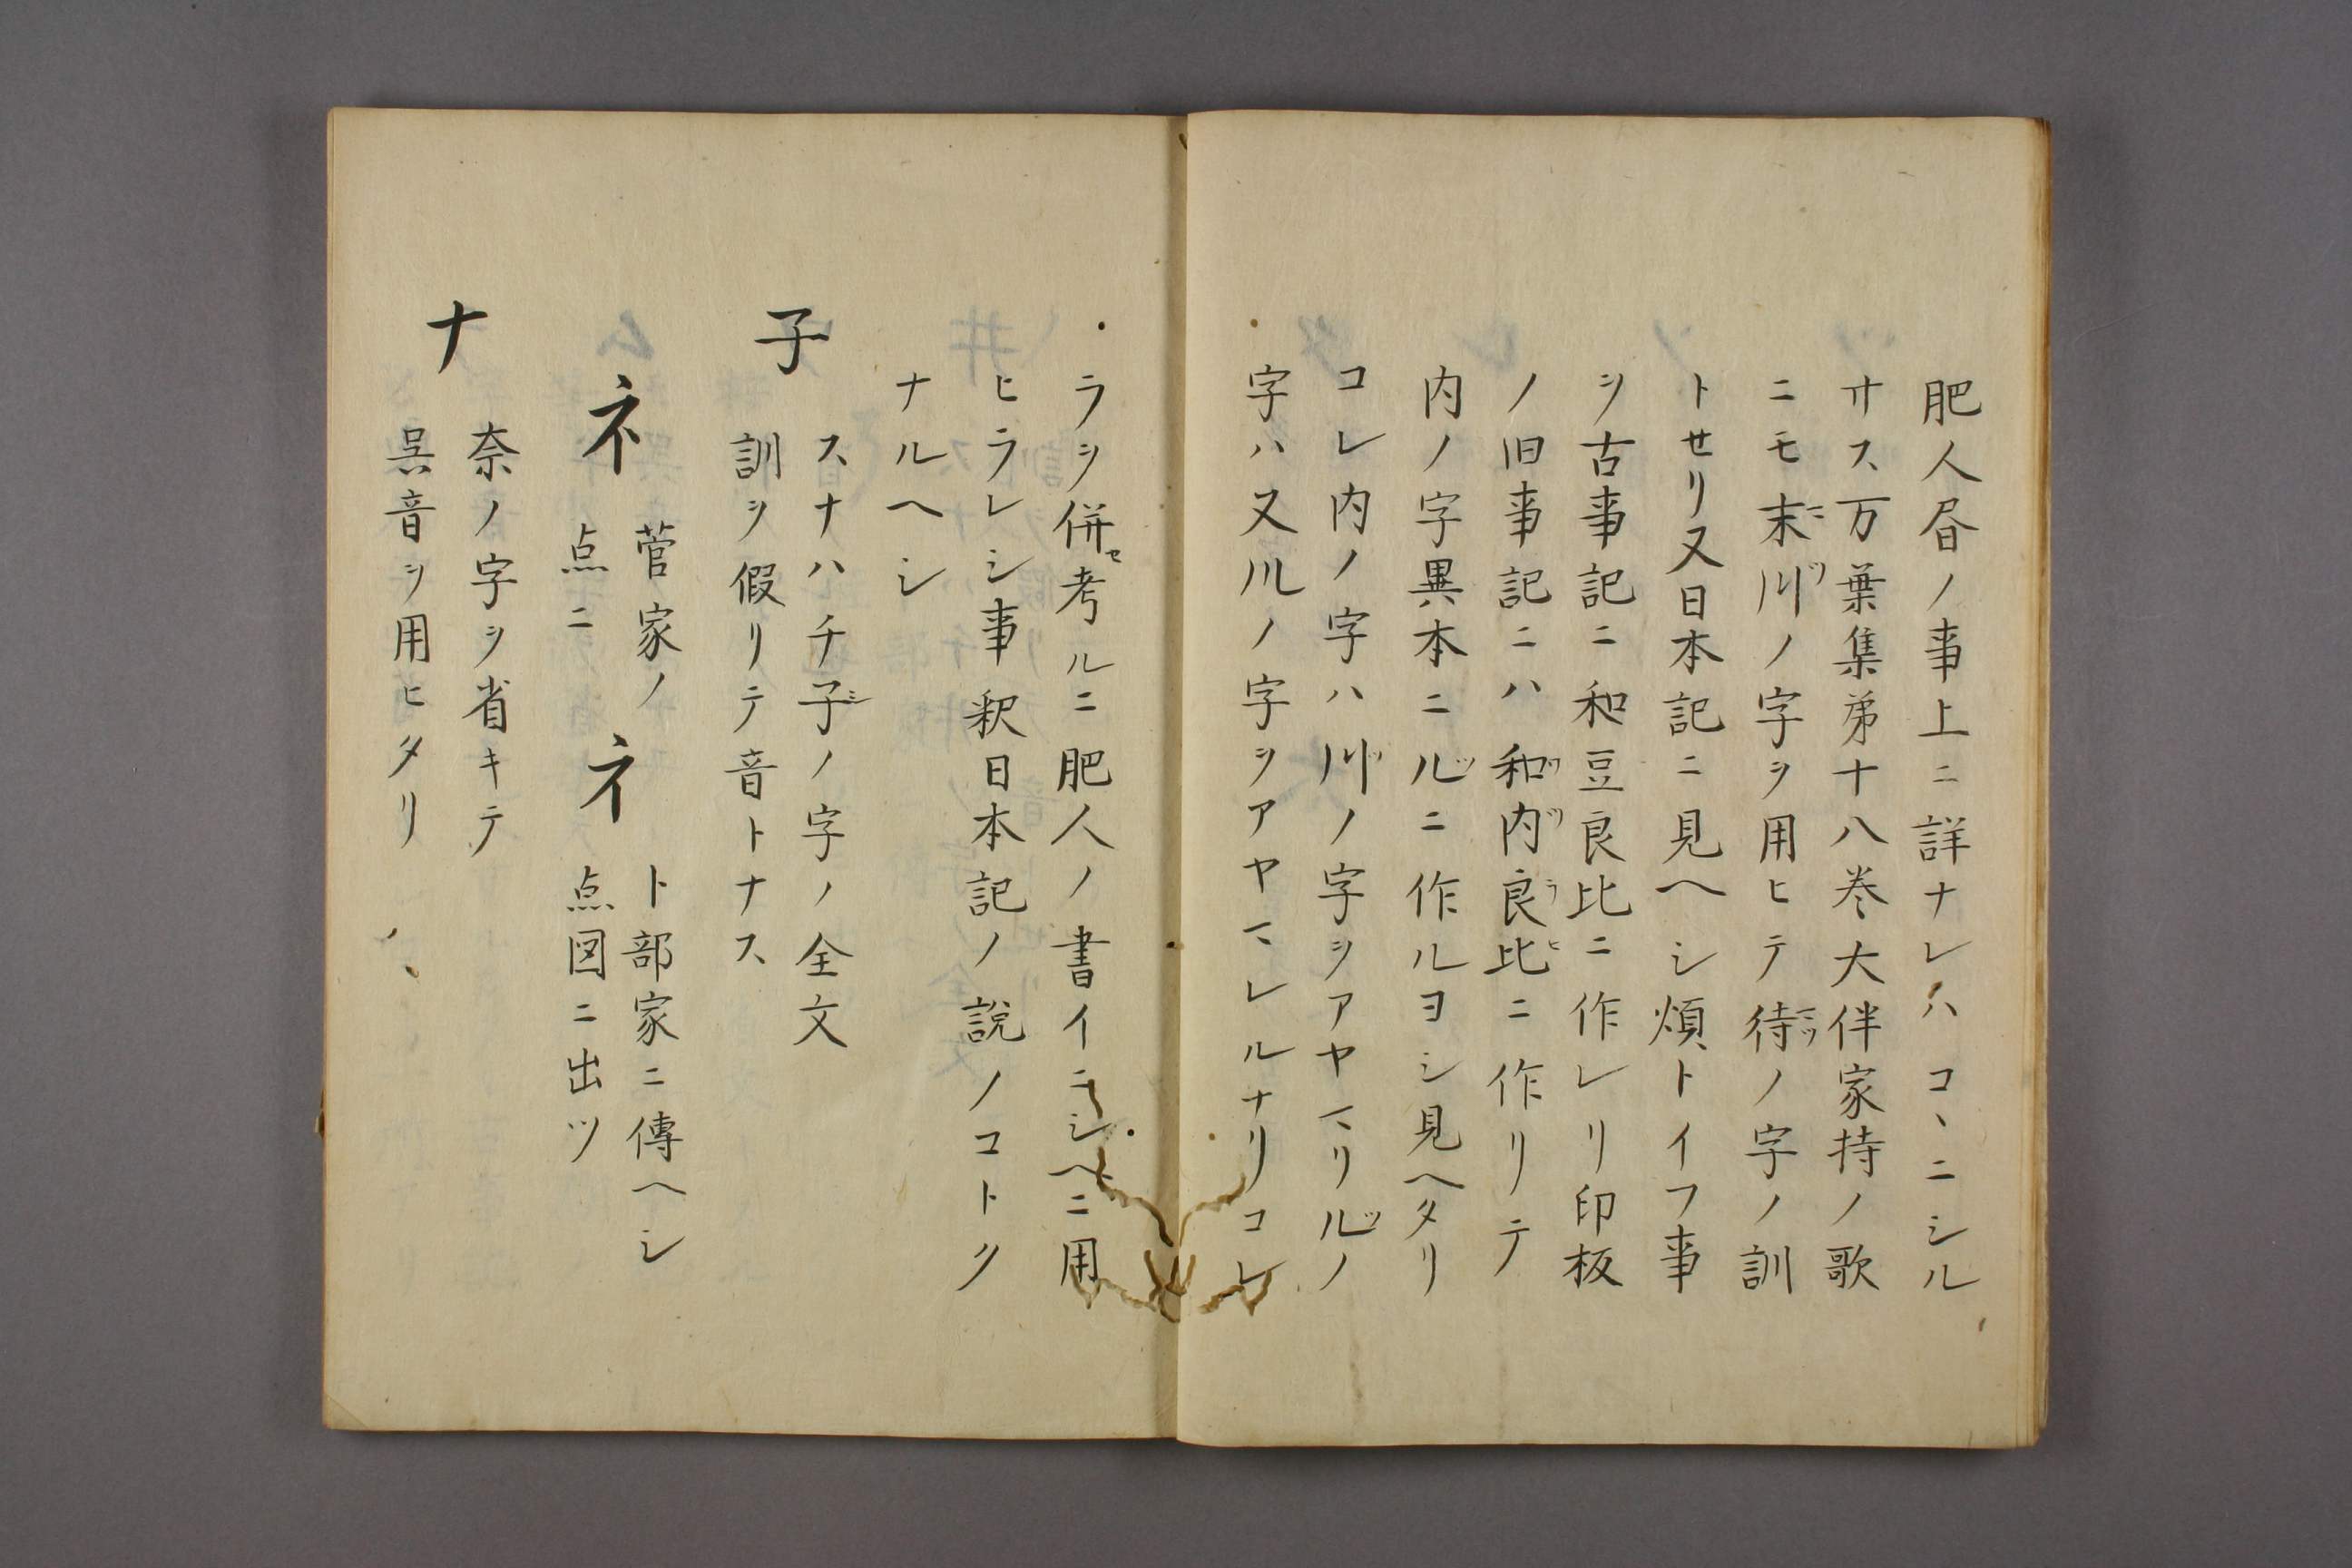 肥人昏ノ事上ニ詳ナレハコヽニシル
サス万葉集第十八巻大伴家持ノ歌
ニモ末川ノ字ヲ用ヒテ待ノ字ノ訓
トセリ又日本記ニ見ヘシ煩トイフ事
ヲ古事記ニ和豆良比ニ作レリ印板
ノ旧事記ニハ和内良比ニ作リテ
内ノ字異本ニルニ作ルヨシ見ヘタリ
コレ内ノ字ハ川ノ字ヲアヤマリルノ
字ハ又川ノ字ヲアヤマレルナリコレ
ラヲ併セ考ルニ肥人ノ書イニシヘニ用
ヒラレシ事釈日本記ノ説ノコトク
ナルヘシ
子
スナハチ子ノ字ノ全文
訓ヲ假リテ音トナス
ネ 菅家ノ点ニ
ネ 卜部家ニ傳ヘシ点図ニ出ツ
ナ
奈ノ字ヲ省キテ
呉音ヲ用ヒタリ